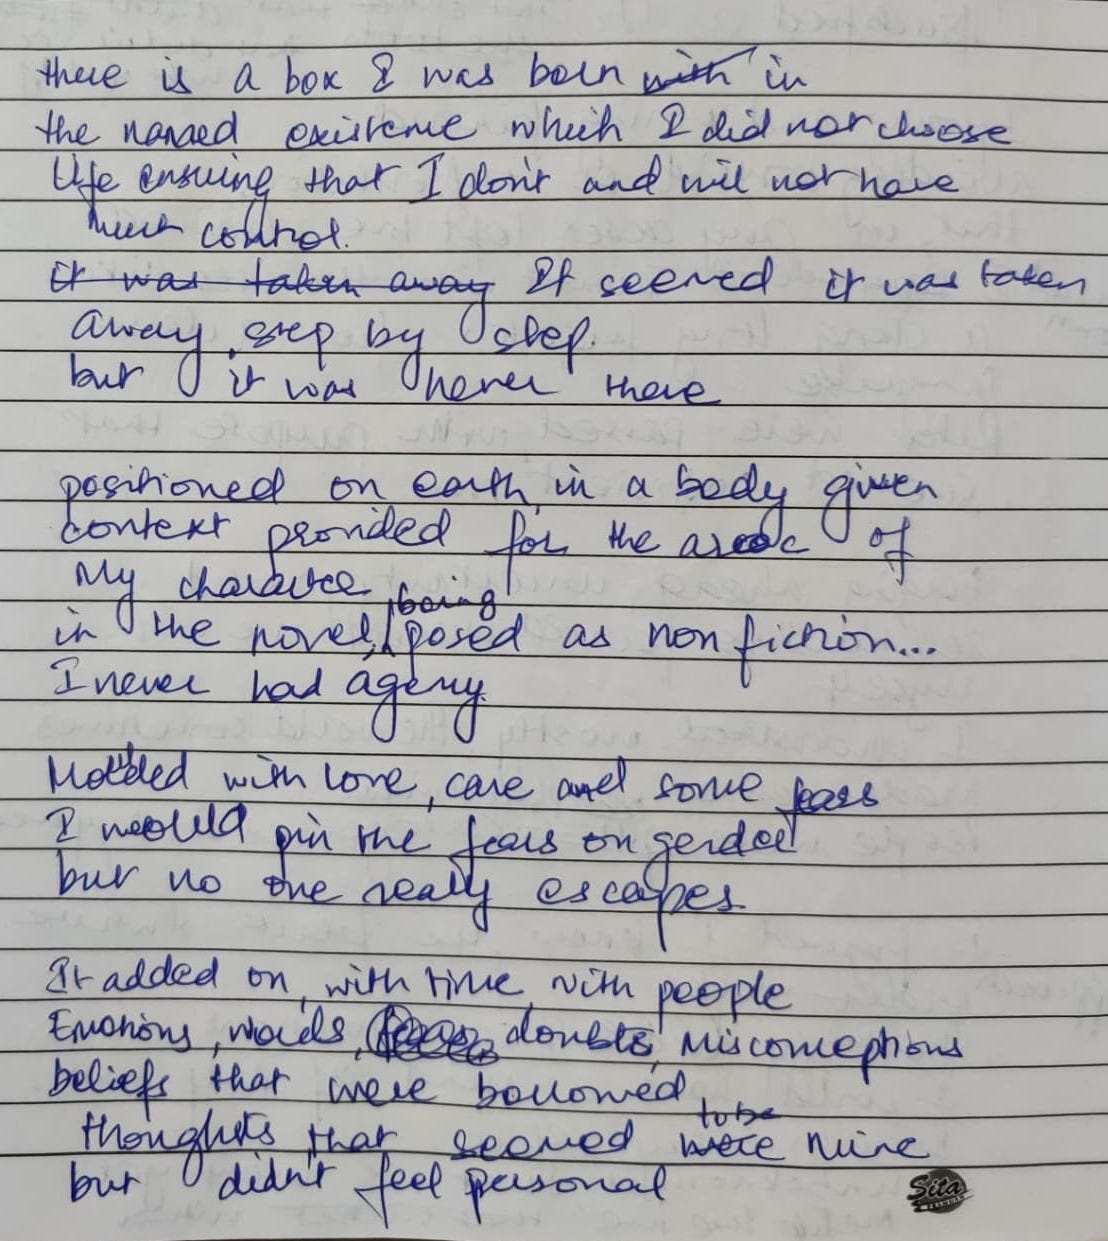 there is a box I was born with in
the named existence which I did not choose
Life ensuring that I don't and will not have
much control.
it was taken away It seemed it was taken
away, step by step.
but it was never there
positioned on earth, in a body given
context provided for the of
My character
being
in the novel, posed as non fiction...
I never had agency
Molded with love, care and some fears
I would pin the fears on gender
but no one really escapes.
It added on, with time, with people
Emotions, words, doubts, misconceptions
beliefs that were borrowed
to be
thoughts that seemed were mine
but didn't feel personal
Sita